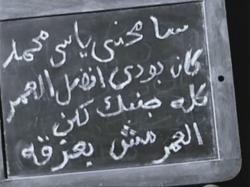 سامحنى ياسى محمد
كان بودى افضل العمر
كله جنبك لكن
العمر مش بعزقه